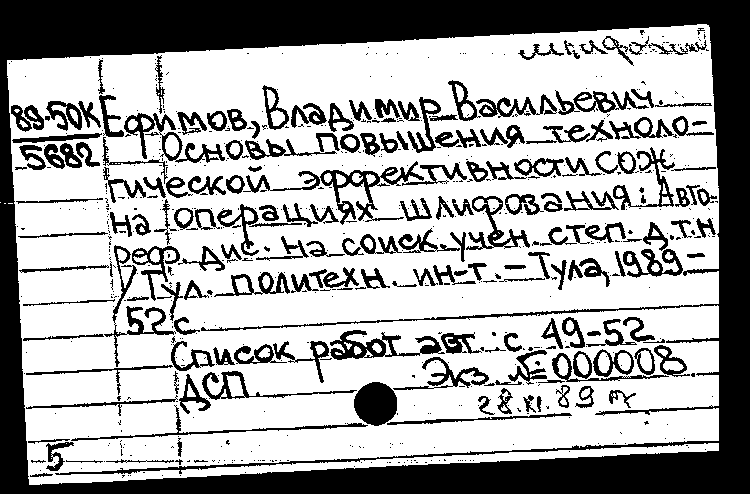 шлифование
89-50К Ефимов, Владимир Васильевич.
5682 Основы повышения техноло-
гической эффективности СОЖ
на операциях шлифования: Авто-
реф. дис. на соиск. учен. степ. д.т.н.
/ Тул. политехн. ин-т. – Тула, 1989.–
52 с.
Список работ авт.: с. 49-52.
ДСП. Экз. № 000008
28.XI.89
5